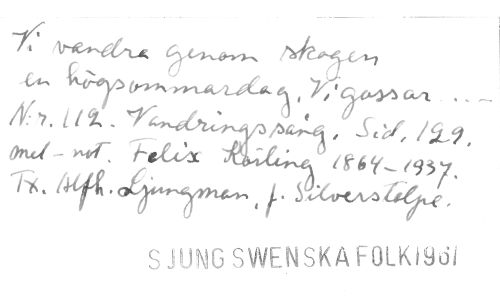 Vi vandra genom skogen
en högsommardag. Vi gossar ....
N:r. 112. Vandringssång. Sid. 129.
mel-not. Felix Körling 1864-1937.
Tx. Alfh. Ljungman, f. Silverstolpe.
SJUNG SWENSKA FOLK 1961